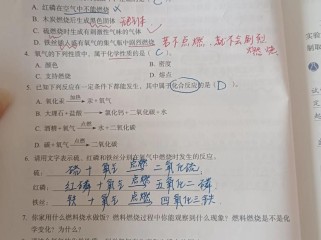 A. 红磷在空气中不能燃烧
B. 木炭燃烧后生成黑色固体
C. 硫燃烧时生成有刺激性气味的气体
D. 铁丝 在氧气的集气瓶中剧烈燃烧 若不点燃，就不会剧烈燃烧
4. 氧气的下列性质中，属于化学性质的是（C）。
A. 颜色 B. 密度
C. 支持燃烧 D. 熔点
5. 已知下列反应在一定条件下都能发生，其中属于化合反应的是（D）。
A. 氧化汞 加热→ 汞+氧气
B. 大理石+盐酸 → 氯化钙+二氧化碳+水
C. 酒精+氧气 点燃→ 水+二氧化碳
D. 碳+氧气 点燃→ 二氧化碳
6. 请用文字表示硫、红磷和铁丝分别在氧气中燃烧时发生的反应。
硫：硫 + 氧气 点燃→ 二氧化硫
红磷：红磷 + 氧气 点燃→ 五氧化二磷
铁丝：铁 + 氧气 点燃→ 四氧化三铁
7. 你家用什么燃料烧水做饭？燃料燃烧过程中你能观察到什么现象？燃料燃烧是不是化学变化？为什么？